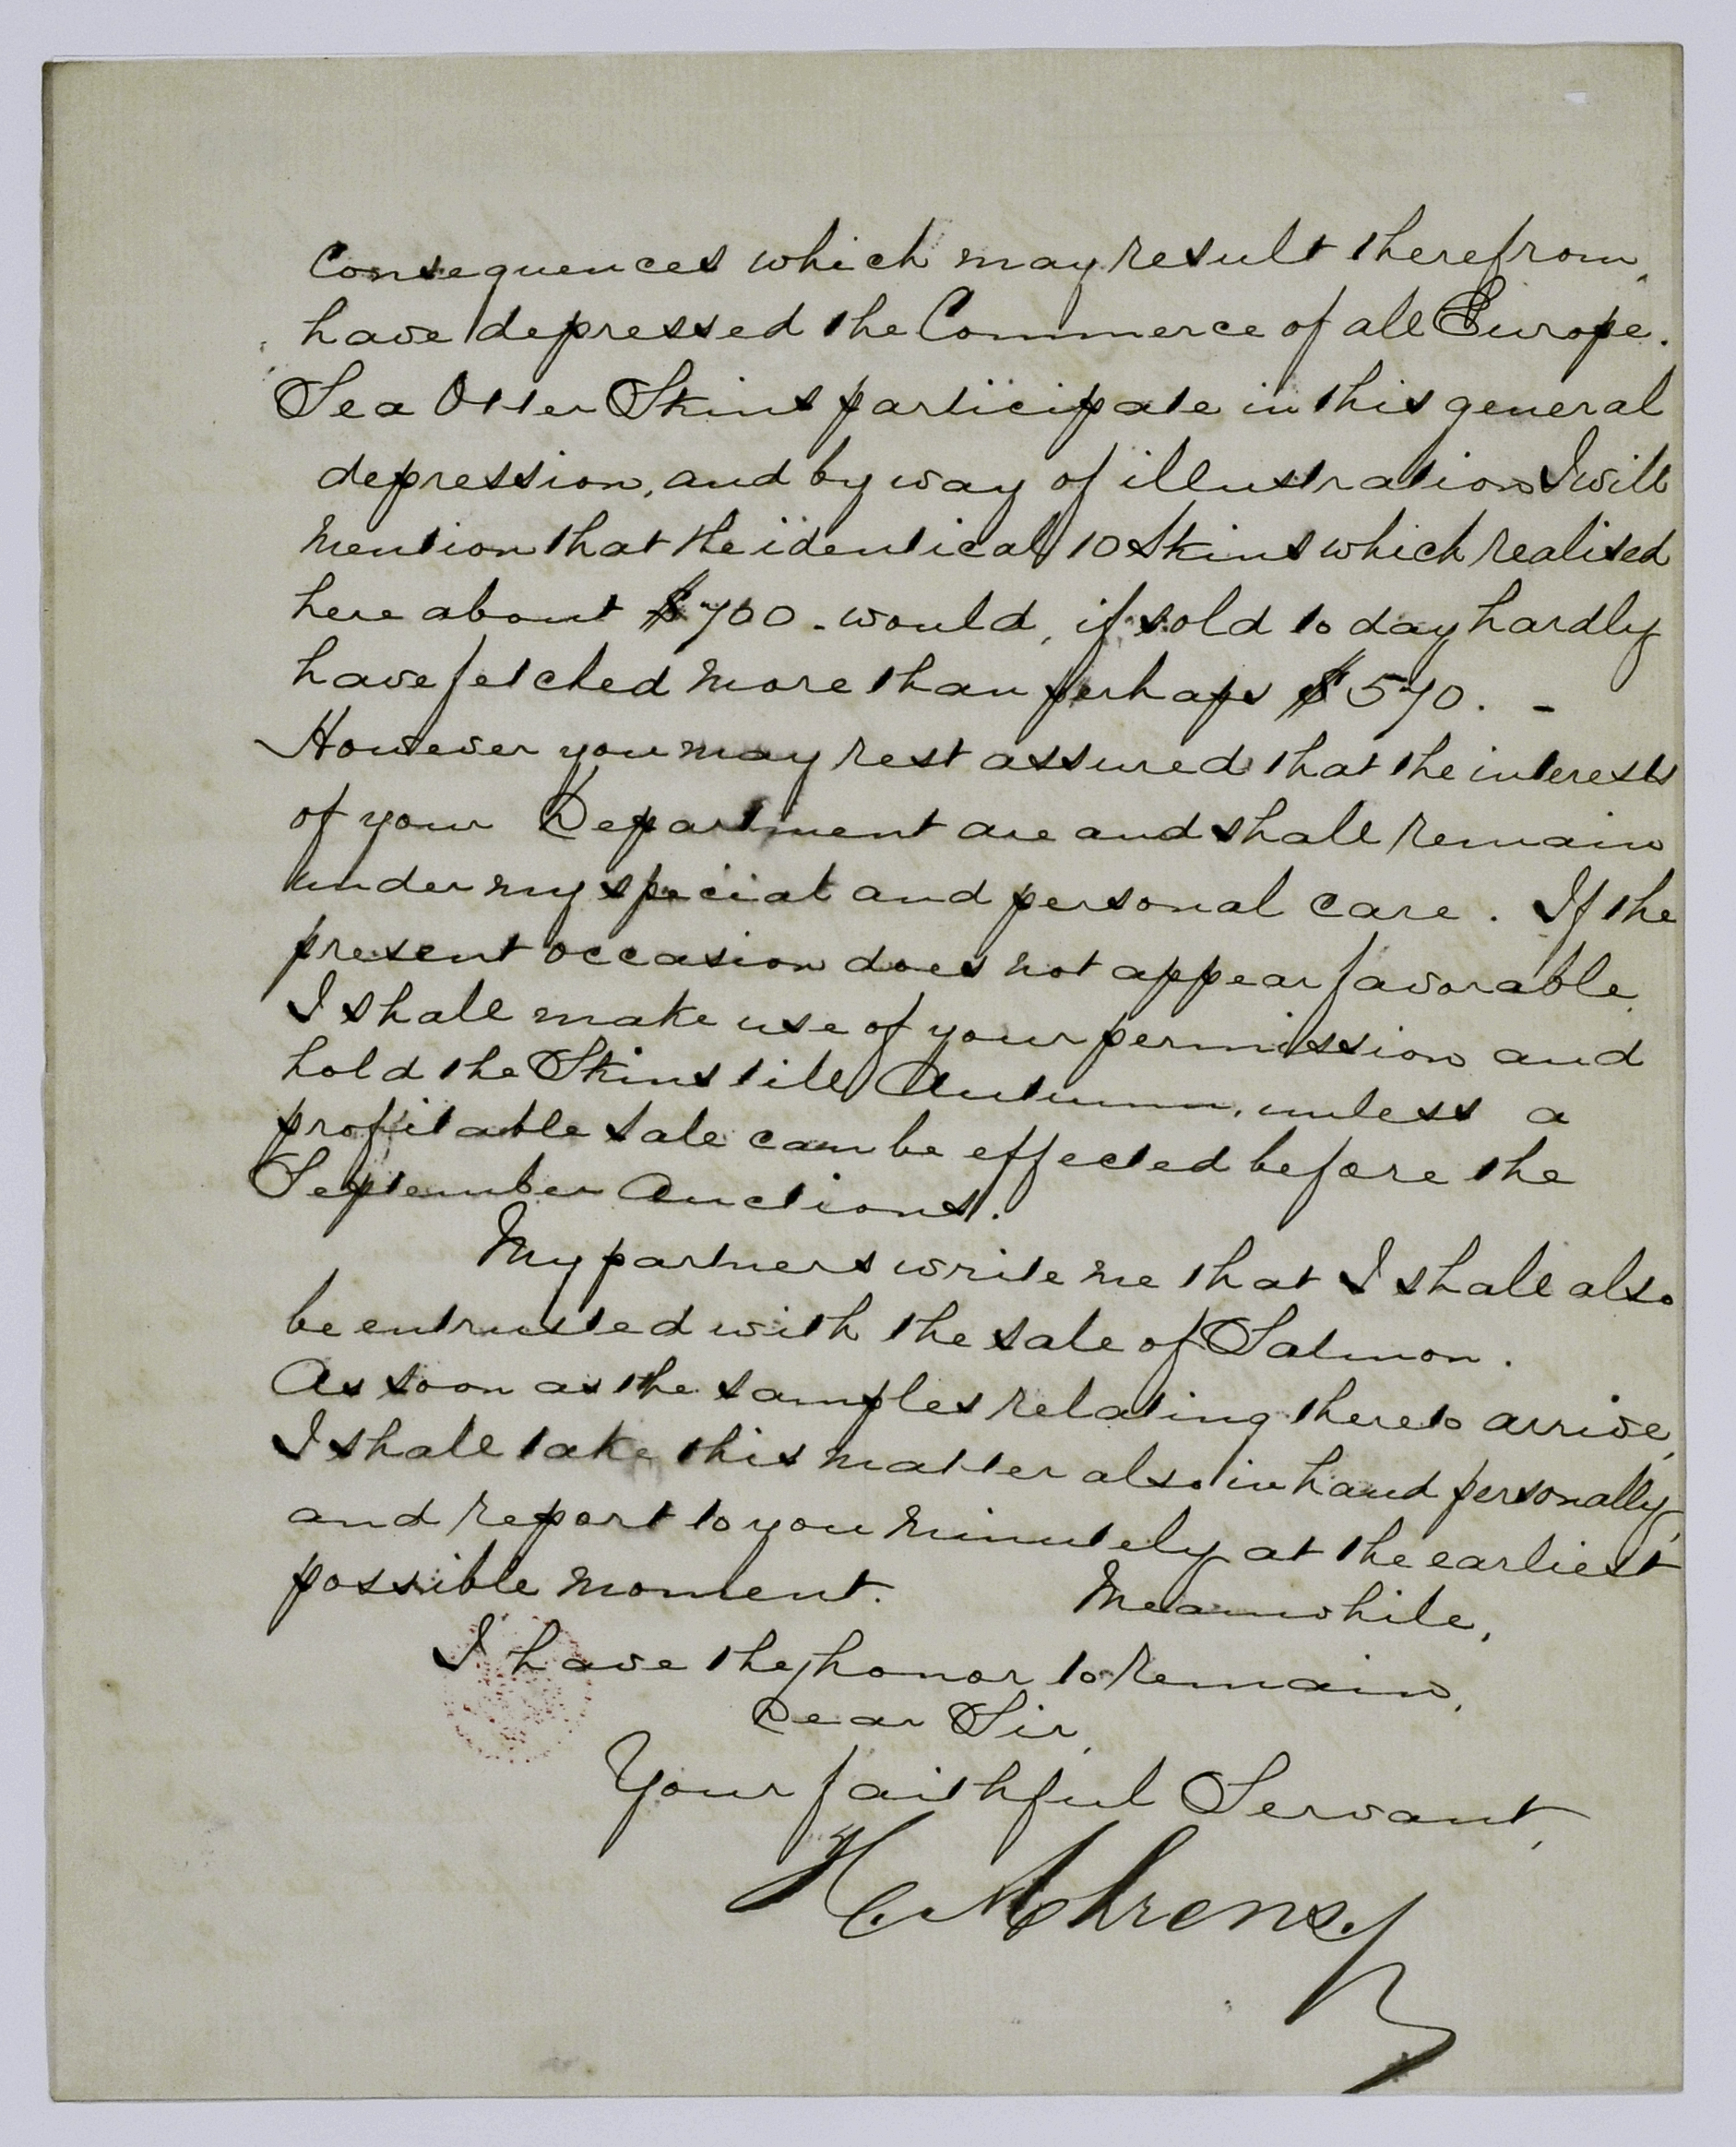 Consequences which may result therefrom,
have depressed the Commerce of all Europe.
Sea Otter Skins participate in this general
depression, and by way of illustration I will
mention that the identical 10 Skins which realised
here about $700 - would, if sold to day hardly
have fetched more than perhaps $570. -
However you may rest assured that the interests
of your Department are and shall remain
under my special and personal care. If the
present occasion does not appear favorable,
I shall make use of your permission and
hold the Skins till Autumn, unless a
profitable sale can be effected before the
September Auctions.
My partners write me that I shall also
be entrusted with the sale of Salmon.
As soon as the samples relating thereto arrive,
I shall take this matter also in hand personally,
and report to you minutely at the earliest
possible moment. Meanwhile,
I have the honor to remain,
Dear Sir,
Your faithful Servant,
H. Ahrens